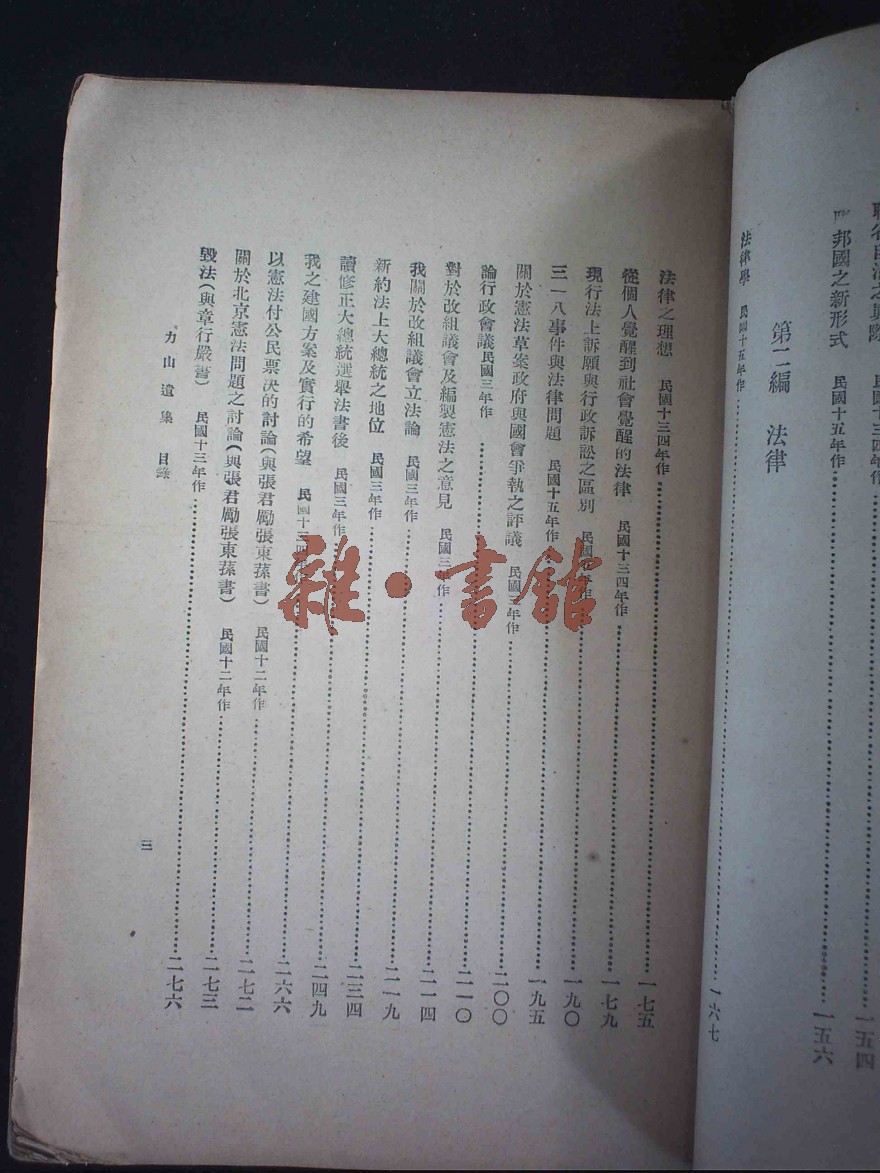 自治之
民國十三年作
一五四
邦國之新形式 民國十五年作……一五六
第二編 法律
法律學 民國十五年作……一六七
法律之理想 民國十三四年作……一七五
從個人覺醒到社會覺醒的法律 民國十三四年作……一七九
現行法上訴願與行政訴訟之區別 民國 年作……一九〇
三一八事件與法律問題 民國十五年作……一九五
關於憲法草案政府與國會爭執之評議 民國三年作……二〇〇
論行政會議民國三年作……二一〇
對於改組議會及編製憲法之意見 民國三年作……二一四
我關於改組議會立法論 民國三年作……二一九
新約法上大總統之地位 民國三年作……二三四
讀修正大總統選舉法書後 民國三年作……二四九
我之建國方案及實行的希望 民國十三四……二六六
以憲法付公民票決的討論(與張君勵張東蓀書) 民國十二年作……二七二
關於北京憲法問題之討論(與張君勵張東蓀書) 民國十二年作……二七三
毀法(與章行嚴書) 民國十三年作……二七六
力山遺集 目錄
三
雜·書館